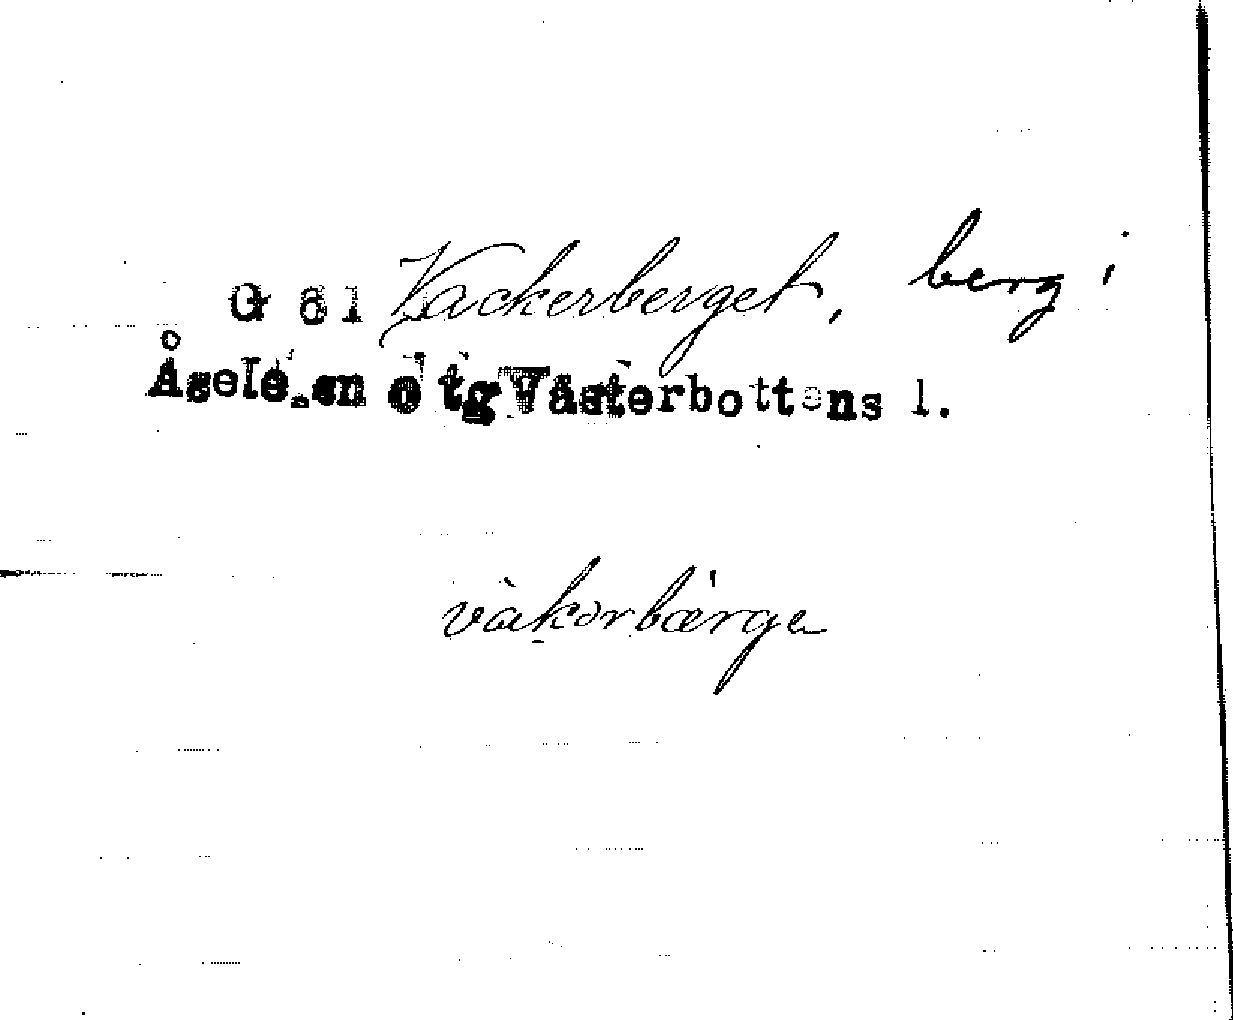 G 61 Vackerberget, berg i
Åsele sn o tg Västerbottens l.
vàkərbærga